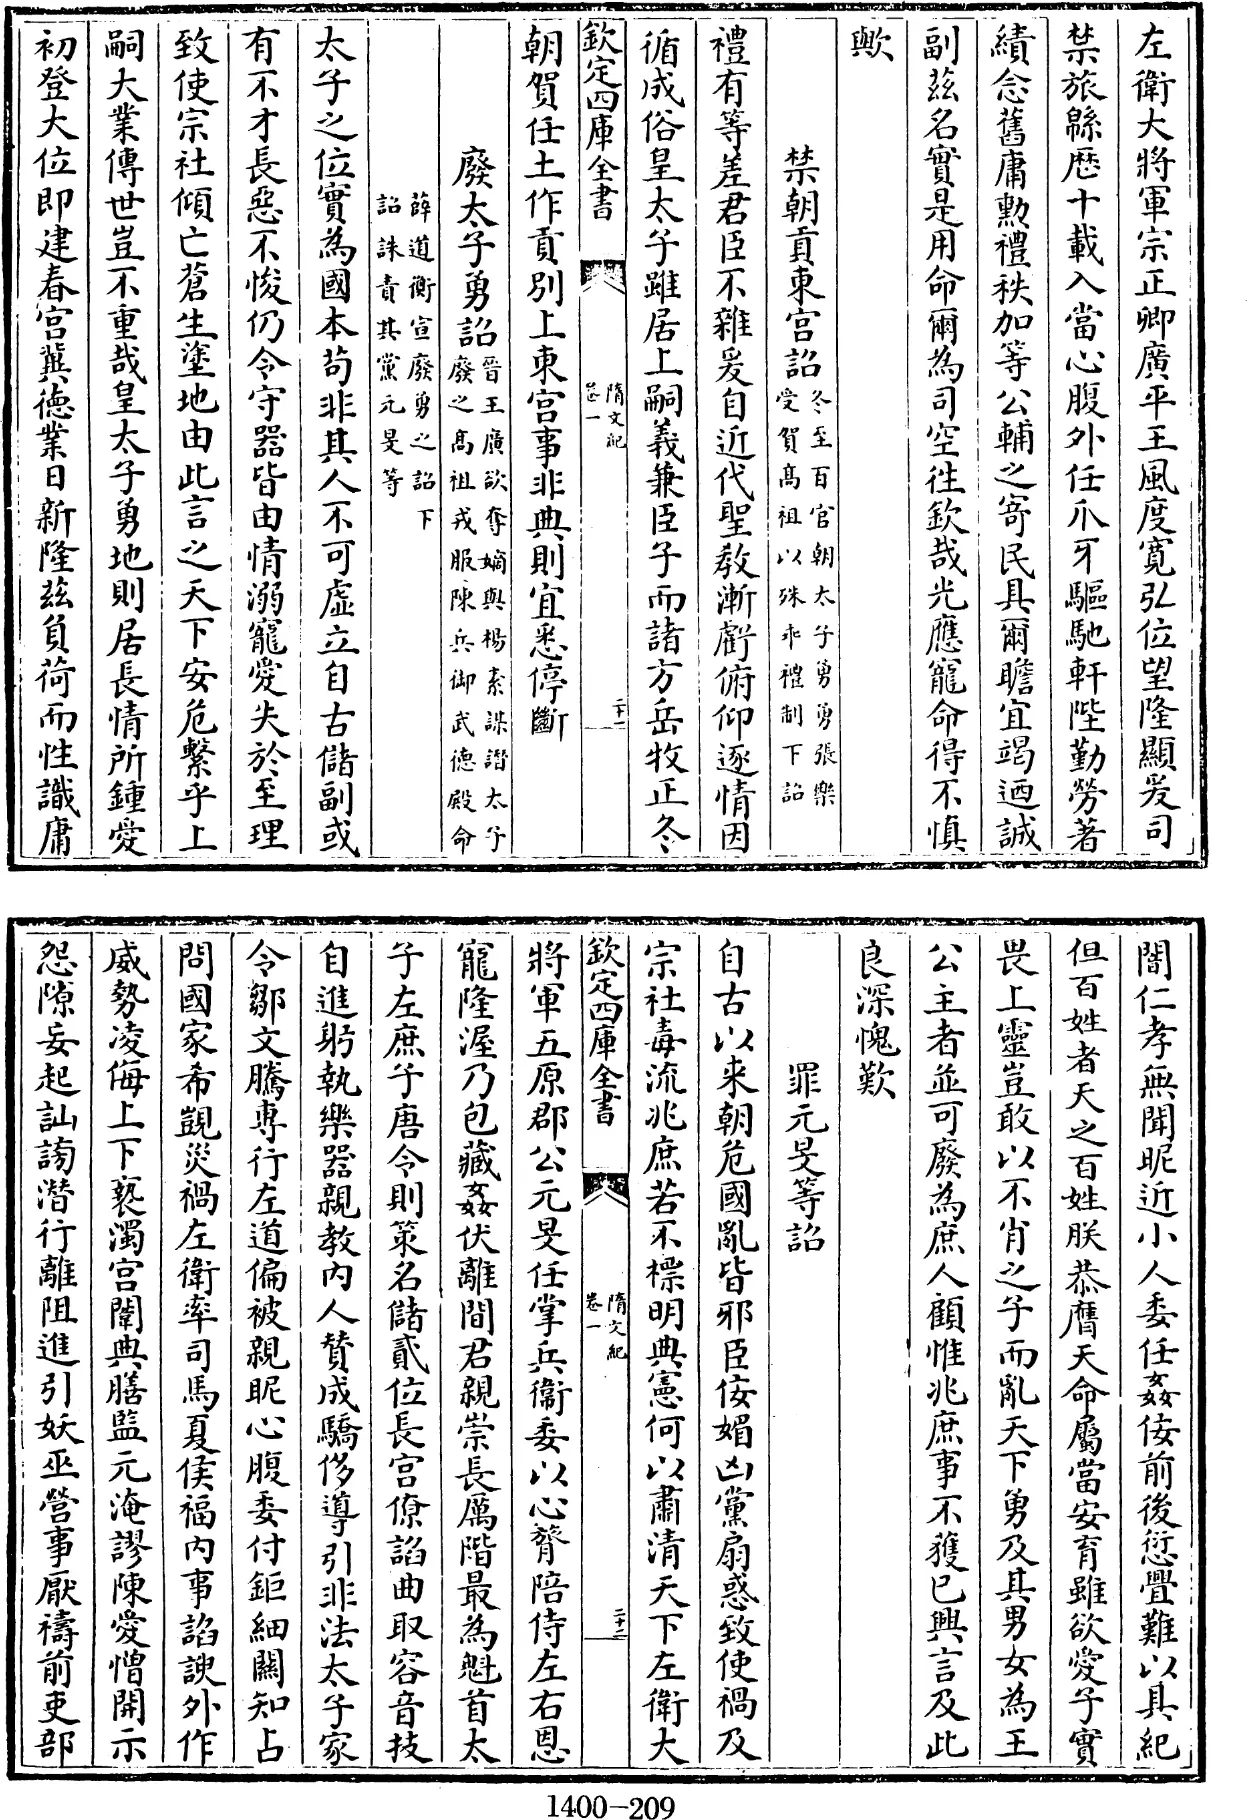 左衛大將軍宗正卿廣平王風度寛弘位望隆顯爰司
禁旅緜歴十載入當心腹外任爪牙驅馳軒陛勤勞著
績念舊庸勲禮秩加等公輔之寄民具爾瞻宜竭迺誠
副茲名實是用命爾為司空徃欽哉光應寵命得不慎
歟
禁朝貢東宫詔
冬至百官朝太子勇勇張樂
受賀髙祖以殊乖禮制下詔
禮有等差君臣不雜爰自近代聖教漸虧俯仰逐情因
循成俗皇太子雖居上嗣義兼臣子而諸方岳牧正冬
欽定四庫全書
隋文紀
卷一
二十一
朝賀任土作貢别上東宫事非典則宜悉停斷
廢太子勇詔
晉王廣欲奪嫡與楊素謀譖太子
廢之髙祖戎服陳兵御武德殿命
薛道衡宣廢勇之詔下
詔誅責其黨元旻等
太子之位實為國本苟非其人不可虚立自古儲副或
有不才長惡不悛仍令守器皆由情溺寵愛失於至理
致使宗社傾亡蒼生塗地由此言之天下安危繫乎上
嗣大業傳世豈不重哉皇太子勇地則居長情所鍾愛
初登大位即建春宫冀德業日新隆茲負荷而性識庸
闇仁孝無聞昵近小人委任姦佞前後愆舋難以具紀
但百姓者天之百姓朕恭膺天命屬當安育雖欲愛子實
畏上靈豈敢以不肖之子而亂天下勇及其男女為王
公主者並可廢為庶人顧惟兆庶事不獲已興言及此
良深愧歎
罪元旻等詔
自古以来朝危國亂皆邪臣佞媚凶黨扇惑致使禍及
宗社毒流兆庶若不標明典憲何以肅清天下左衛大
欽定四庫全書
隋文紀
卷一
二十二
將軍五原郡公元旻任掌兵衛委以心膂陪侍左右恩
寵隆渥乃包藏姦伏離間君親崇長厲階最為魁首太
子左庶子唐令則策名儲貳位長宫僚諂曲取容音技
自進躬執樂器親教内人賛成驕侈導引非法太子家
令鄒文騰専行左道偏被親昵心腹委付鉅細關知占
問國家希覬災禍左衛率司馬夏侯福内事諂諛外作
威勢凌侮上下褻濁宫闈典膳監元淹謬陳愛憎開示
怨隙妄起訕謗潜行離阻進引妖巫營事厭禱前吏部
1400-209